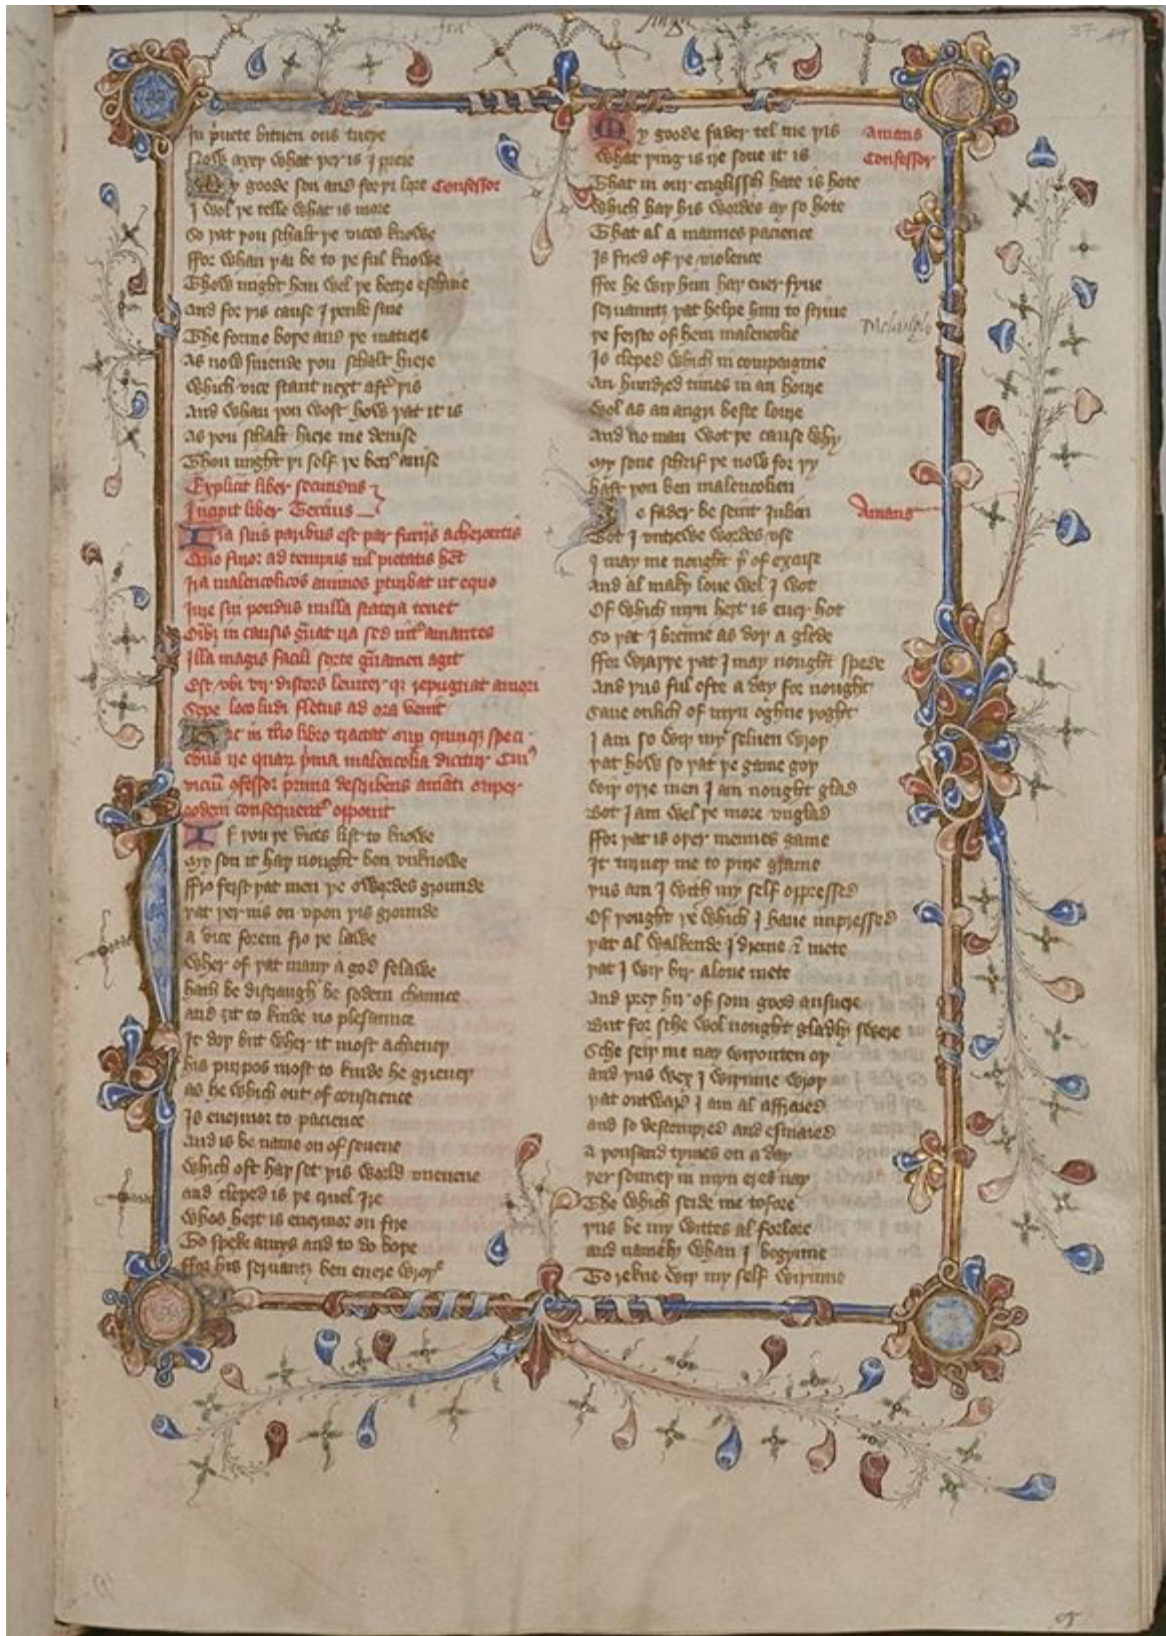 In priuete bitwen ous tueye
Now axeþ what þer is I preie
My goode son and for þi lore Confessor
I wol þe telle what is more
So þat þou schalt þe vices knowe
ffor whan þai be to þe ful knowe
Thow might hem wel þe bettre eschiue
And for þis cause I þenke siue
The forme boþe and þe matiere
As now suiende þou schalt hiere
Which vice stant next aftr þis
And whan þou wost how þat it is
As þou schalt hiere me deuise
Thou might þi self þe betr auise
Explicit liber secundus
Incipit liber Tercius
Ira suis paribus est par furiis acherontis
Quo furor ad tempus nil pietatis het
Ira malencolicos animos pturbat ut equo
Iure sui pondus nulla statera tenet
Oibz in causis grauat ira sed int amantes
Illa magis facili sorte grauamen agit
Est vbi vir discors leuiter qz repugnat amori
Sepe loco ludi fletus ad ora venit
Hic in tcio libro tractat supr quinqz speci
ebus ire quarz prima malencolia dicitur Cuius
viciu confessor primo describens amanti super
eodem consequentr opponit
If þou þe vices list to knowe
My son it haþ nought ben vnknowe
ffro ferst þat men þe swerdes grounde
þat þer nis on vpon þis grounde
a vice forein fro þe lawe
Wher of þat many a god felawe
hath be distraugh be sodein chaunce
and ȝit to kinde no plesaunce
It doþ but wher it most achieueþ
his purpos most to kinde he grieueþ
as he which out of conscience
Is enemy to pacience
And is be name on of seuene
Which oft haþ set þis world vneuene
and cleped is þe cruel Ire
Whos hert is euermor on fire
To speke amys and to do boþe
ffor his seruantz ben euere wroþe
My goode fader tel me þis Amans
What þing is ire sone it is Confessor
That in our englissh hate is hote
Which haþ his wordes ay so hote
That al a mannes pacience
Is fired of þe violence
ffor he wiþ him haþ euer fyue
seruantz þat helpe him to striue
þe ferste of hem malencolie
Is cleped which in compaignie
An hundred times in an houre
Wol as an angri beste loure
And no man wot þe cause why
My sone schrif þe now for þy
hast þou ben malencolien
Ȝe fader be seint Iulien Amans
Bot I vntrewe wordes vse
I may me nought þr of excuse
And al makþ loue wel I wot
Of which myn hert is euer hot
So þat I brenne as doþ a glede
ffor wraþþe þat I may nought spede
And þus ful ofte a day for nought
Saue onlich of myn oghne þoght
I am so wiþ my seluen wroþ
þat how so þat þe game goþ
wiþ oþre men I am nought glad
Bot I am wel þe more vnglad
ffor þat is oþer mennes game
It turneþ me to pure grame
þus am I with my self oppressed
Of þought þe which I haue impressed
þat al wakende I dreme & mete
þat I wiþ hir alone mete
And prey hir of som good ansuere
But for sche wol nought gladly swere
Sche seiþ me nay wiþouten oþ
and þus wex I wiþinne wroþ
þat outward I am al affraied
and so destempred and esmaied
a þousand tymes on a day
þer souneþ in myn eres nay
The which seide me tofore
þus be my wittes al forlore
and namely whan I beginne
To rekne wiþ my self wiþinne